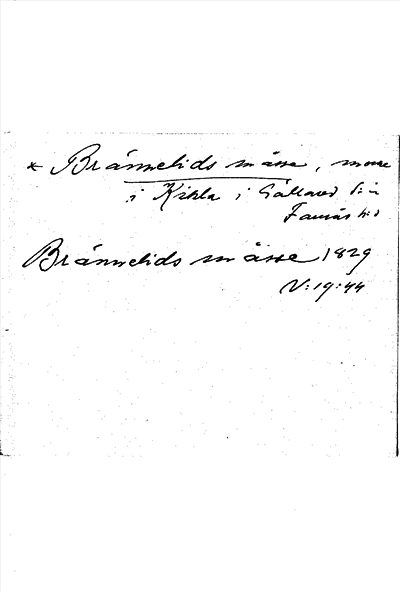 * Brännelids måsse, mosse
i Kikla i Gällared s:n
Faurås h:d
Brännelids måsse 1829
V:19:44